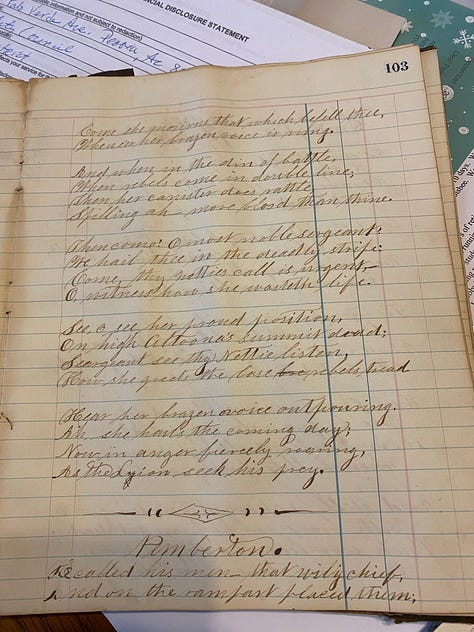 NANCIAL DISCLOSURE STATEMENT
information and not subject to redaction)
Verde Ave. Peoria, Az 8
Council
103
Come she mourns that which befell thee,
When on her brazen voice is rung.
And when in the din of battle,
When rebels come in double line,
Then her canister does rattle,
Spilling ah— more blood than thine.
Then come! O most noble sergeant!
We hail thee in the deadly strife
Come, thy Netties call is urgent,
O, witness how she wasteth life.
See, o see her proud position,
On high Altoona's summit dread;
Seargeant see thy Nettie listen,
How she greets the base rebels tread
Hear her brazen voice outpouring.
Ah, she hails the coming day;
Now in anger fiercely roaring,
As the Lyion seek his prey.
Pemberton.
He called his men— that wily chief,
And on the rampart placed them;